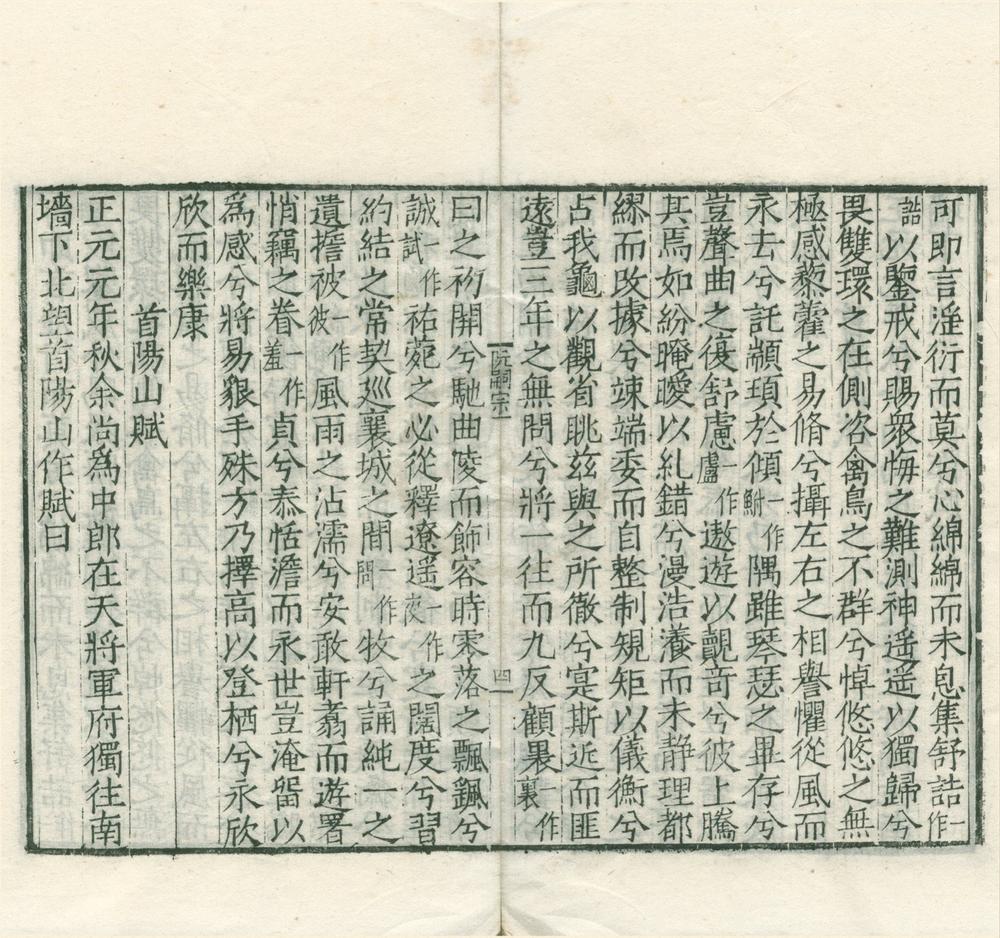 可即言淫衍而莫兮心綿綿而未息集舒詰一作
詣以鑒戒兮賜衆悔之難測神遥遥以獨歸兮
畏雙環之在側咨禽鳥之不群兮悼悠悠之無
極感藜藿之易脩兮攝左右之相譽懼從風而
永去兮託顓頊於傾一作鮒隅雖琴瑟之畢存兮
豈聲曲之復舒慮一作盧遨遊以覿竒兮彼上騰
其焉如紛晻曖以乱錯兮漫浩瀁而未静理都
繆而改據兮竦端委而自整制規矩以儀衡兮
占我龜以觀省眺兹與之所徹兮寔斯近而匪
遠豈三年之無問兮將一往而九反顧杲一作裏
阮嗣宗
四
曰之初開兮馳曲陵而飾容時零落之飄颻兮
誠一作試祐菀之必從釋遼遥一作夜之闊度兮習
約結之常契廵襄城之間一作問牧兮誦純一之
遺擔被一作彼風雨之沾濡兮安敢軒翥而遊署
悄竊之眷一作羞貞兮泰恬澹而永世豈淹留以
爲感兮將易貇乎殊方乃擇高以登栖兮永欣
欣而樂康
首陽山賦
正元元年秋余尚爲中郎在天將軍府獨往南
墻下北望首陽山作賦曰